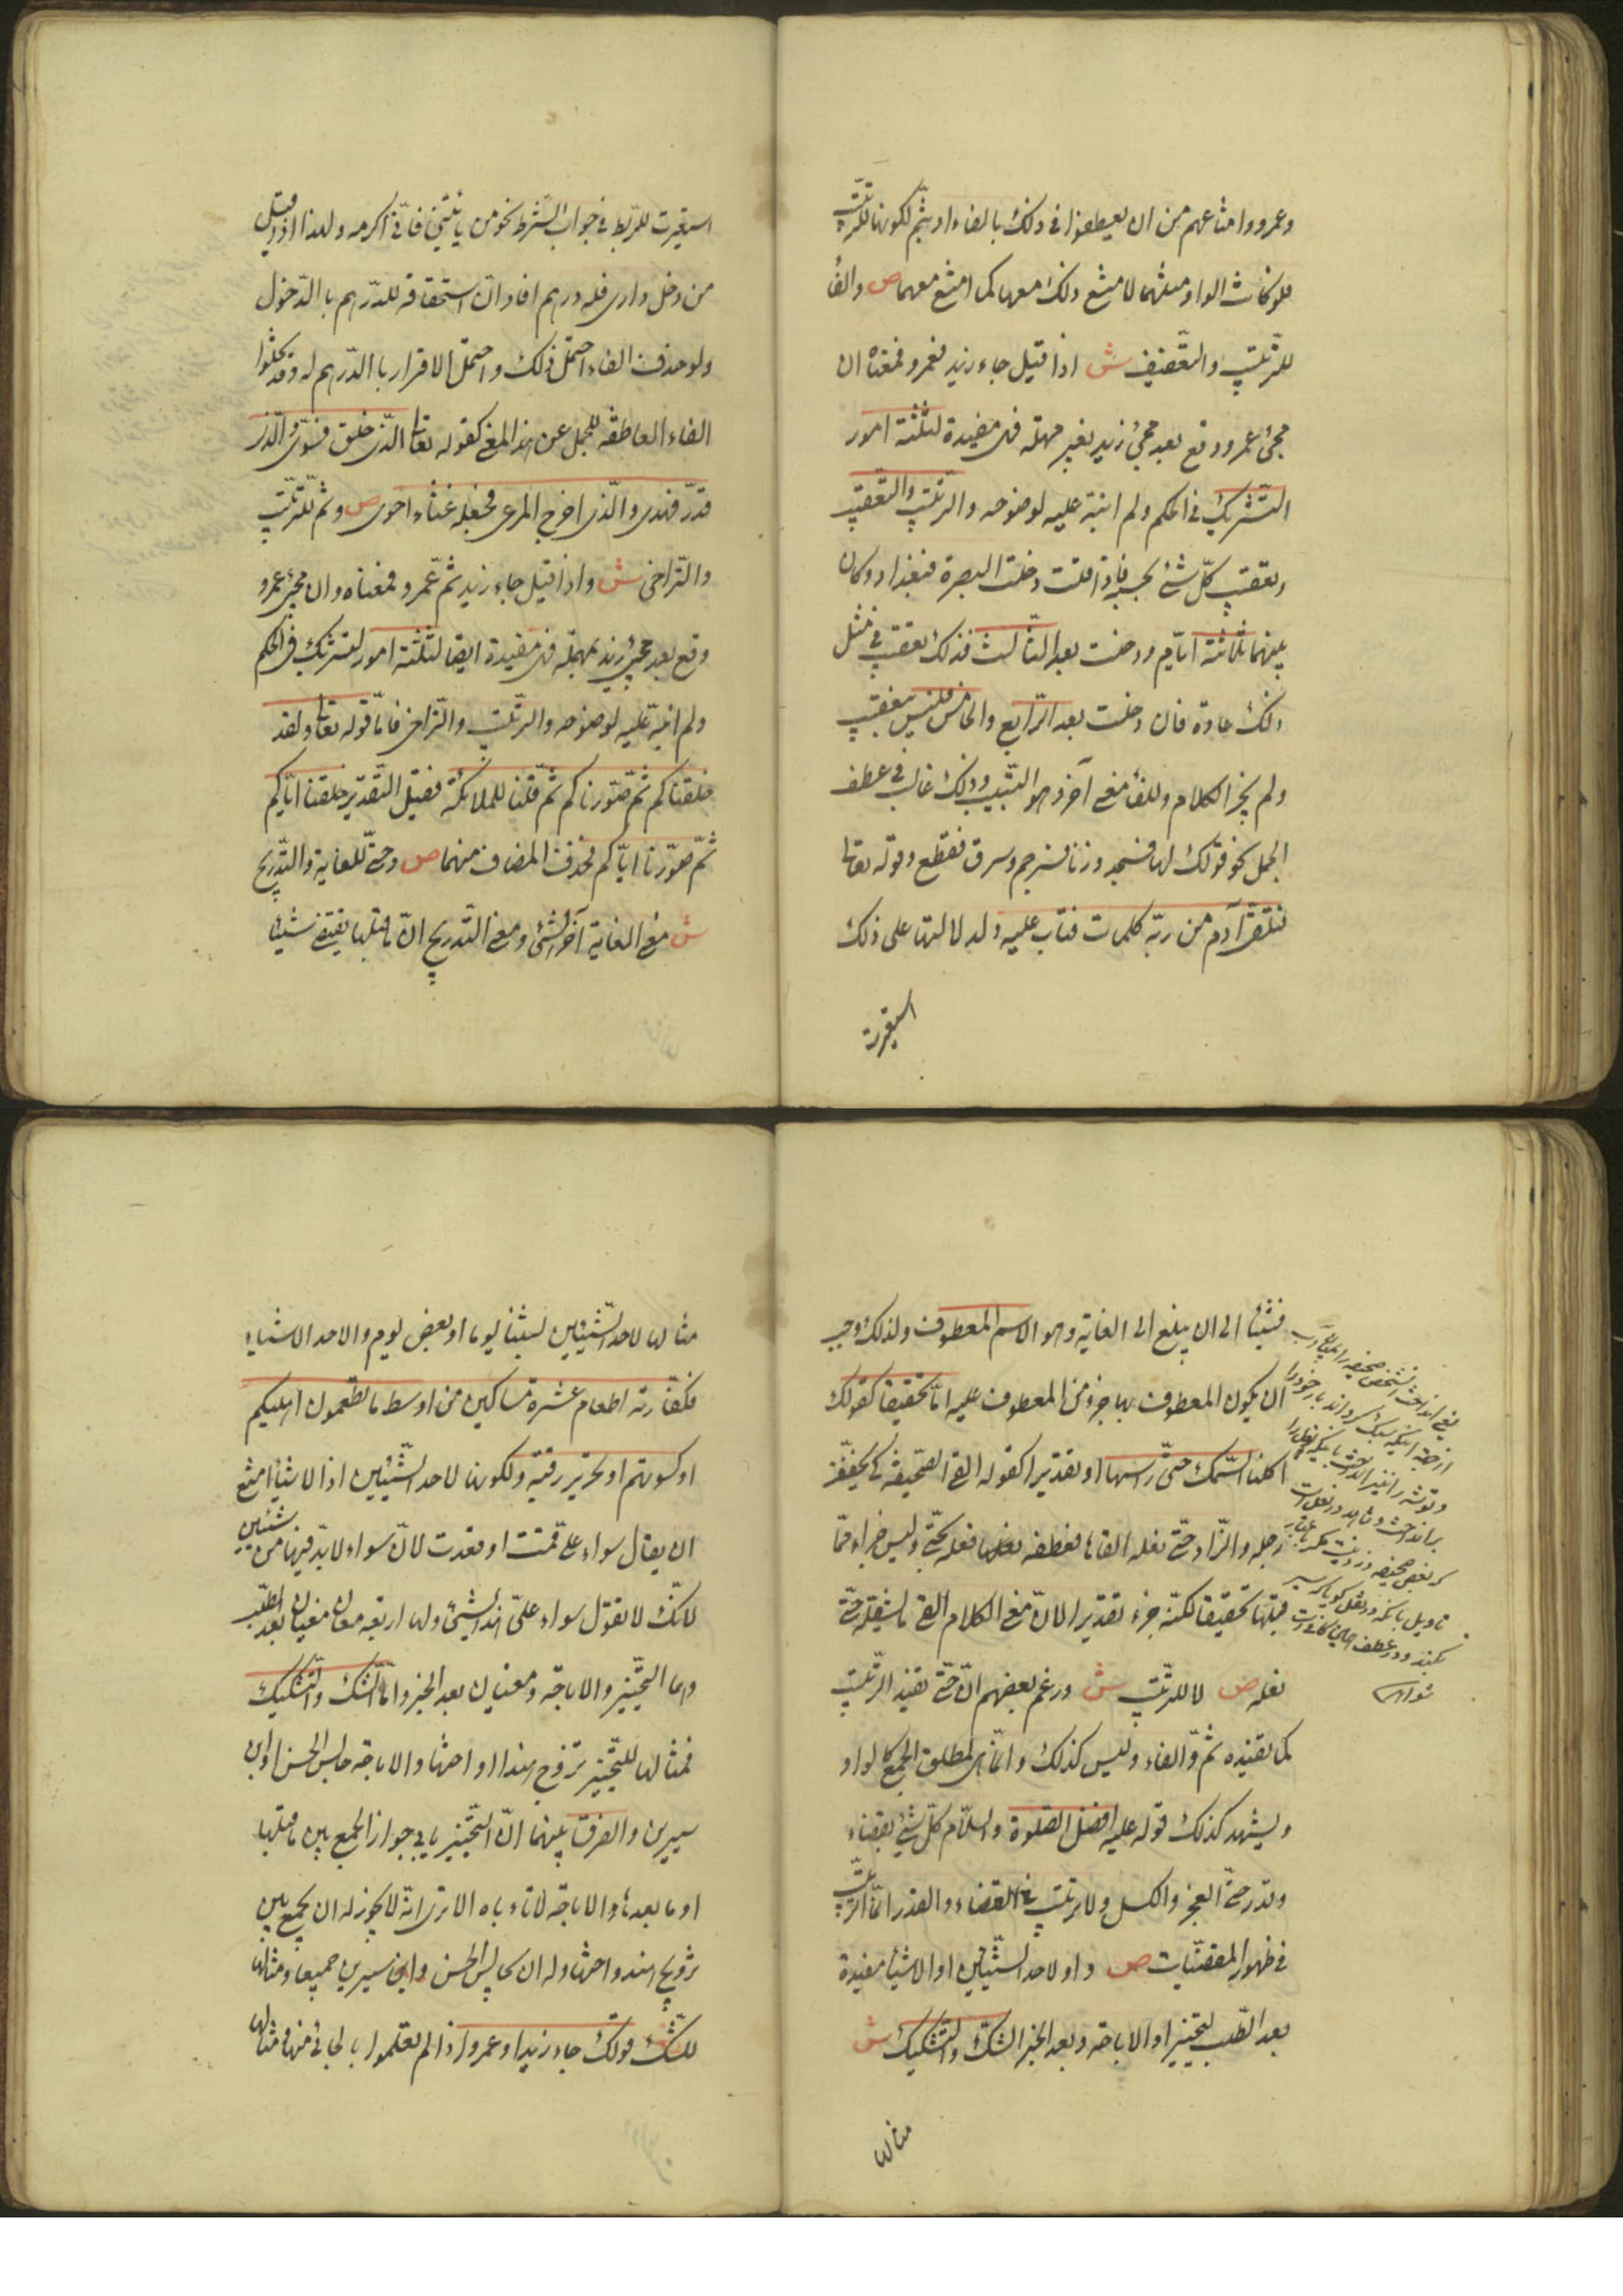 وعمرو وامتناعهم من ان يعطفوا فى ذلك بالفاء او بثم لكونهما للترتيب
فلو كانت الواو مثلهما لامتنع ذلك معها كما امتنع معهما ص والفأ
للترتيب والتعقيب ش اذا قيل جاء زيد فعمرو فمعناه ان
مجئ عمرو وقع بعد مجئ زيد بغير مهلة فهى مفيدة لثلثة امور
التشريك فى الحكم ولم انبه عليه لوضوحه والترتيب والتعقيب
وتعقيب كل شئ بحسبه فاذا قلت دخلت البصرة فبغداد وكان
بينهما ثلاثة ايام ودخلت بعد الثالث فذلك تعقيب فى مثل
ذلك عادة فان دخلت بعد الرابع والخامس فليس بتعقيب
ولم يجز الكلام وللفأ معنى آخر وهو التسبيب وذلك غالب فى عطف
الجمل نحو قولك سها فسجد وزنا فرجم وسرق فقطع وقوله تعالى
فتلقى آدم من ربه كلمات فتاب عليه ولدلالتها على ذلك
استعيرت
استعيرت للربط فى جواب الشرط نحو من يأتينى فانى اكرمه ولهذا اذا قيل
من دخل دارى فله درهم افاد ان استحقاقه للدرهم بالدخول
ولو حذف الفاء احتمل ذلك واحتمل الاقرار بالدرهم له وقد تخلوا
الفاء العاطفة للجمل عن هذا المعنى كقوله تعالى الذى خلق فسوى والذى
قدر فهدى والذى اخرج المرعى فجعله غثاء احوى ص وثم للترتيب
والتراخى ش واذا قيل جاء زيد ثم عمرو فمعناه وان مجئ عمرو
وقع بعد مجئ زيد بمهلة فهى مفيدة ايضا لثلثة امور لتشريك فى الحكم
ولم انبه عليه لوضوحه والترتيب والتراخى فاما قوله تعالى ولقد
خلقناكم ثم صورناكم ثم قلنا للملائكة فقيل التقدير خلقنا اباكم
ثم صورنا اباكم فحذف المضاف منهما ص وحتى للغاية والتدريج
ش معنى الغاية آخر الشئ ومعنى التدريج ان ما قبلها يقتضى شيئا
فشيئا الى ان يبلغ الى الغاية وهو الاسم المعطوف ولذلك وجب
ان يكون المعطوف بها جزء من المعطوف عليه اما تحقيقا كقولك
اكلت السمك حتى راسها او تقديرا كقوله القى الصحيفة كى يخفف
رحله والزاد حتى نعله القاها فعطف نعله بحتى وليس جزء مما
قبلها تحقيقا لكنه جزء تقديرا لان معنى الكلام القى ما يثقله حتى
نعله ص لا للترتيب ش وزعم بعضهم ان حتى تفيد الترتيب
كما تفيده ثم والفاء وليس كذلك وانما هى لمطلق الجمع كالواو
ويشهد كذلك قوله عليه افضل الصلوة والسلام كل شئ بقضاء
وقدر حتى العجز والكسل ولا ترتيب فى القضاء والقدر انما الترتيب
فى ظهور المقضيات ص واو لاحد الشيئين او الاشيأ مفيدة
بعد الطلب لتخيير او الاباحة وبعد الخبر الشك والتشكيك ش
مثالها
مثالها لاحد الشيئين لبثنا يوما او بعض يوم والاحد الاشياء
فكفارته اطعام عشرة مساكين من اوسط ما تطعمون اهليكم
او كسوتهم او تحرير رقبة ولكونها لاحد الشيئين اذا الاشيأ امتنع
ان يقال سواء على قمت او قعدت لان سواء لا بد فيها من شيئين
لانك لا تقول سواء على هذا الشئ ولها اربعة معان معنيان بعد الطلب
وهما التخيير والاباحة ومعنيان بعد الخبر واما الشك والتشكيك
فمثالها للتخيير تزوج هندا او اختها والاباحة جالس الحسن او ابن
سيرين والفرق بينهما ان التخيير يابى جواز الجمع بين ما قبلها
او ما بعدها والاباحة لا تاباه الا ترى انه لا يجوز له ان يجمع بين
تزويج هند واختها وله ان يجالس الحسن وابن سيرين جميعا ومثالها
للشك قولك جاء زيد او عمرو اذا لم تعلموا بالجائى منهما ومثالها